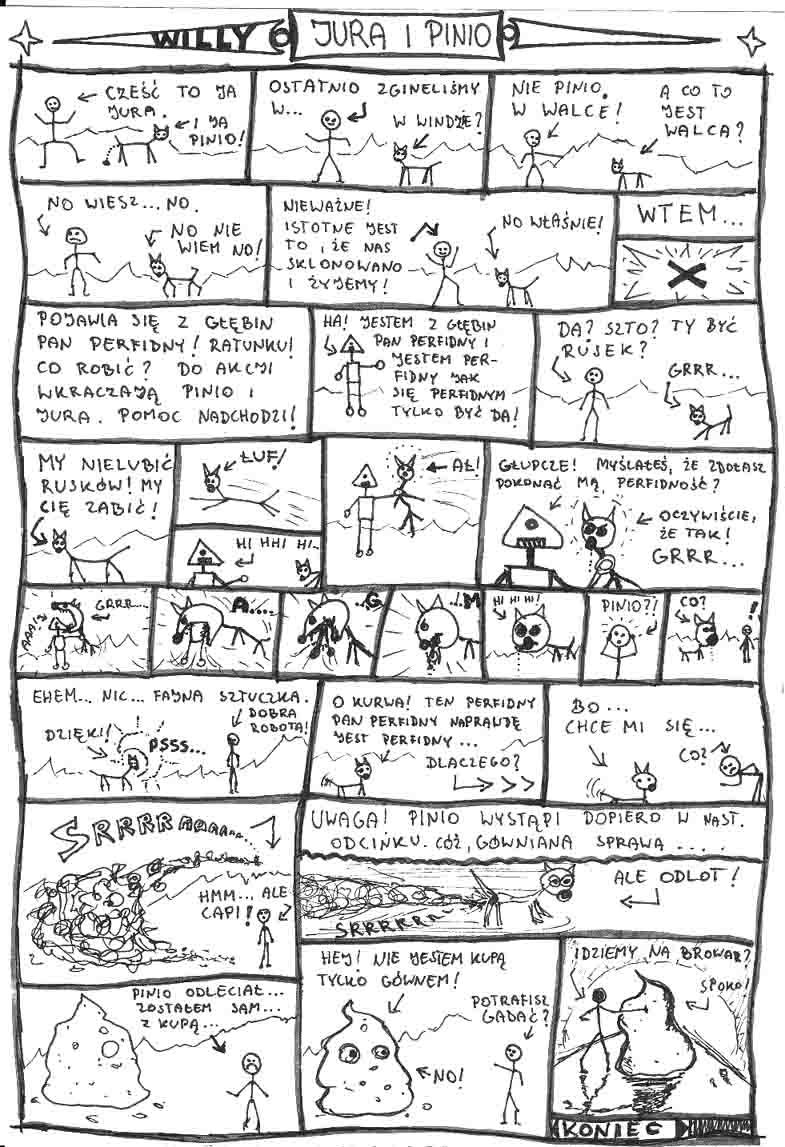 WILLY
JURA I PINIO
CZEŚĆ TO JA
JURA.
I JA
PINIO!
OSTATNIO ZGINELIŚMY
W...
W WINDZIE?
NIE PINIO.
W WALCE!
A CO TO
JEST
WALCA?
NO WIESZ... NO.
NO NIE
WIEM NO!
NIEWAŻNE!
ISTOTNE JEST
TO , ŻE NAS
SKLONOWANO
I ŻYJEMY!
NO WŁAŚNIE!
WTEM...
POJAWIA SIĘ Z GŁĘBIN
PAN PERFIDNY! RATUNKU!
CO ROBIĆ? DO AKCJI
WKRACZAJĄ PINIO I
JURA. POMOC NADCHODZI!
HA! JESTEM Z GŁĘBIN
PAN PERFIDNY I
JESTEM PER-
FIDNY JAK
SIĘ PERFIDNYM
TYLKO BYĆ DA!
DA? SZTO? TY BYĆ
RUSEK?
GRRR...
MY NIELUBIĆ
RUSKÓW! MY
CIĘ ZABIĆ!
ŁUF!
HI HHI HI..
AŁ!
GŁUPCZE! MYŚLAŁEŚ, ŻE ZDOŁASZ
POKONAĆ MĄ PERFIDNOŚĆ?
OCZYWIŚCIE,
ŻE TAK!
GRRR...
AAA!
GRRR....
A....
..G
..M
HI HI HI!
PINIO?!
CO?
!
EHEM... NIC... FAJNA SZTUCZKA.
DZIĘKI!
PSSS...
DOBRA
ROBOTA!
O KURWA! TEN PERFIDNY
PAN PERFIDNY NAPRAWDĘ
JEST PERFIDNY ...
DLACZEGO?
BO...
CHCE MI SIĘ...
CO?
SRRRRAAAAAA...
HMM... ALE
CAPI!
UWAGA! PINIO WYSTĄPI DOPIERO W NAST.
ODCINKU. CÓŻ, GÓWNIANA SPRAWA ....
ALE ODLOT!
SRRRRRA
PINIO ODLECIAŁ...
ZOSTAŁEM SAM...
Z KUPĄ...
HEY! NIE JESTEM KUPĄ
TYLKO GÓWNEM!
POTRAFISZ
GADAĆ?
NO!
IDZIEMY NA BROWAR?
SPOKO!
KONIEC